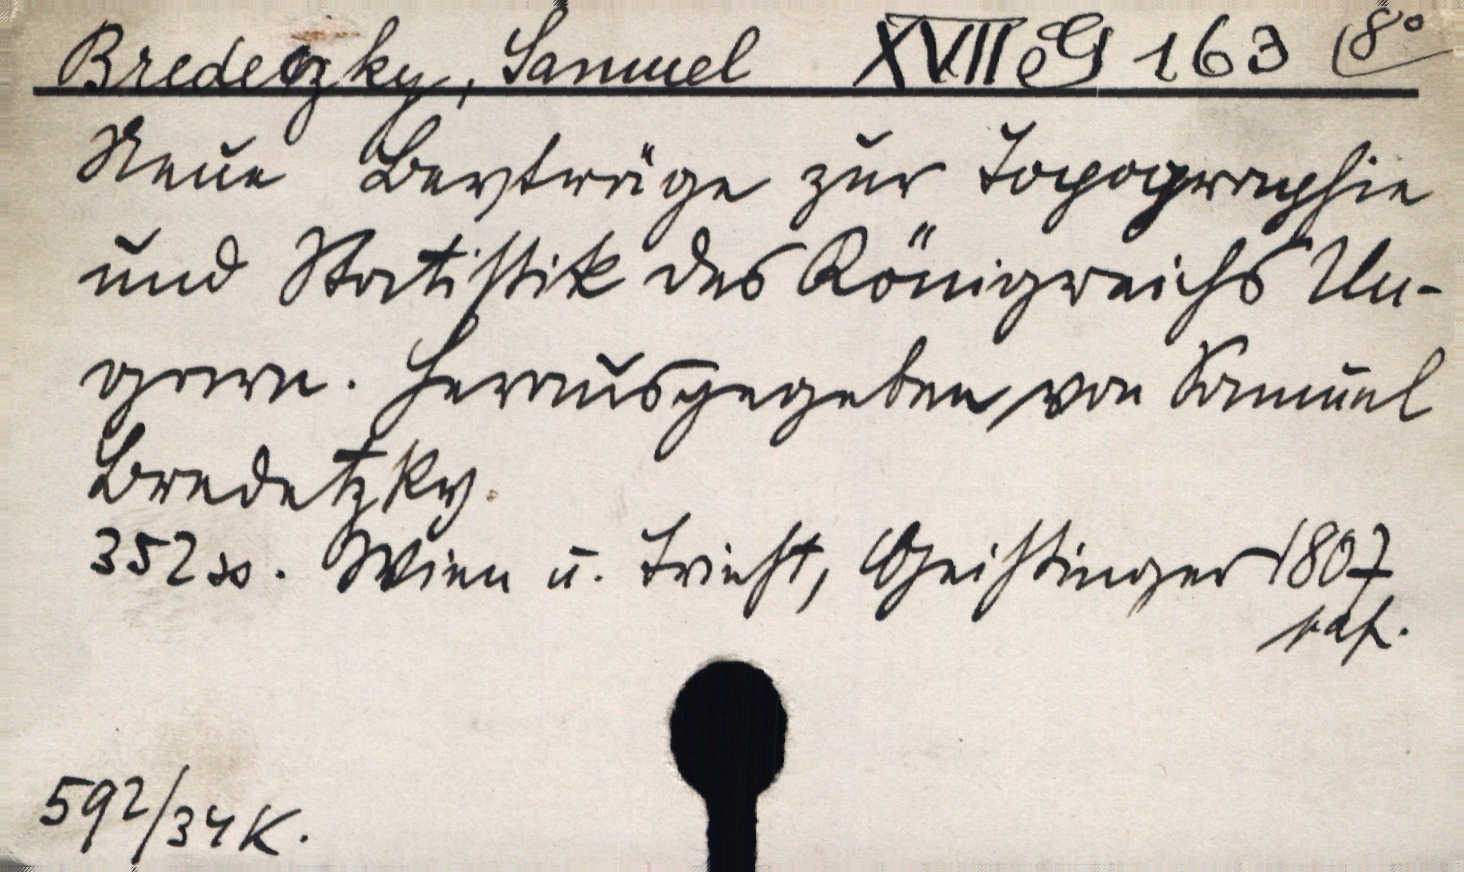 Bredeczky, Samuel XVII G 163 8°
Neue Beyträge zur Topographie
und Statistik des Königreichs Un-
garn. Herausgegeben von Samuel
Bredetzky.
352 ss. Wien u. Triest, Geistinger 1807
592/34 K.